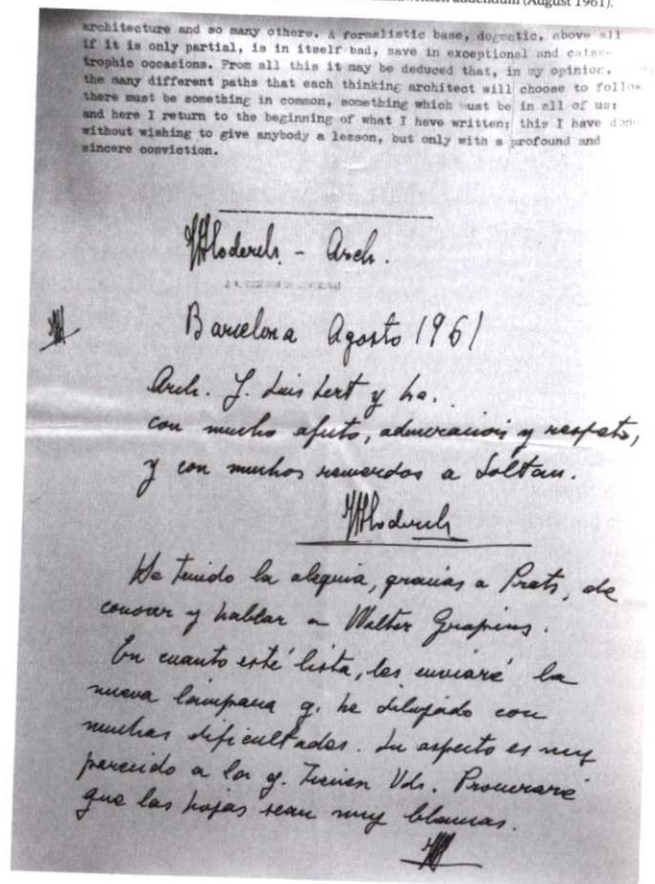 addendum (August 1961).
architecture and so many others. A formalistic base, dogmatic, above all
if it is only partial, is in itself bad, save in exceptional and catas-
trophic occasions. From all this it may be deduced that, in my opinion,
the many different paths that each thinking architect will choose to follow
there must be something in common, something which must be in all of us:
and here I return to the beginning of what I have written; this I have done
without wishing to give anybody a lesson, but only with a profound and
sincere conviction.
Coderch - Arch.
Barcelona Agosto 1961
Arch. J. Luis Sert y
con mucho afecto, admiración y respeto,
y con muchos recuerdos a Soltan.
Coderch
He tenido la alegria, gracias a Prats, de
conocer y hablar a Walter Gropius.
En cuanto esté lista, les enviaré la
nueva lámpara q. he dibujado con
muchas dificultades. Su aspecto es muy
parecido a la q. tienen Vds. Procuraré
que las hojas sean muy blancas.